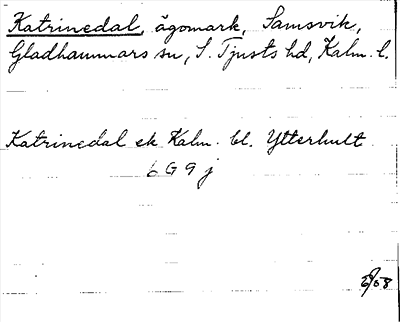 Katrinedal, ägomark, Samsvik,
Gladhammars sn, S. Tjusts hd, Kalm. l.
Katrinedal ek Kalm. bl. Ytterhult
6 G 9 j